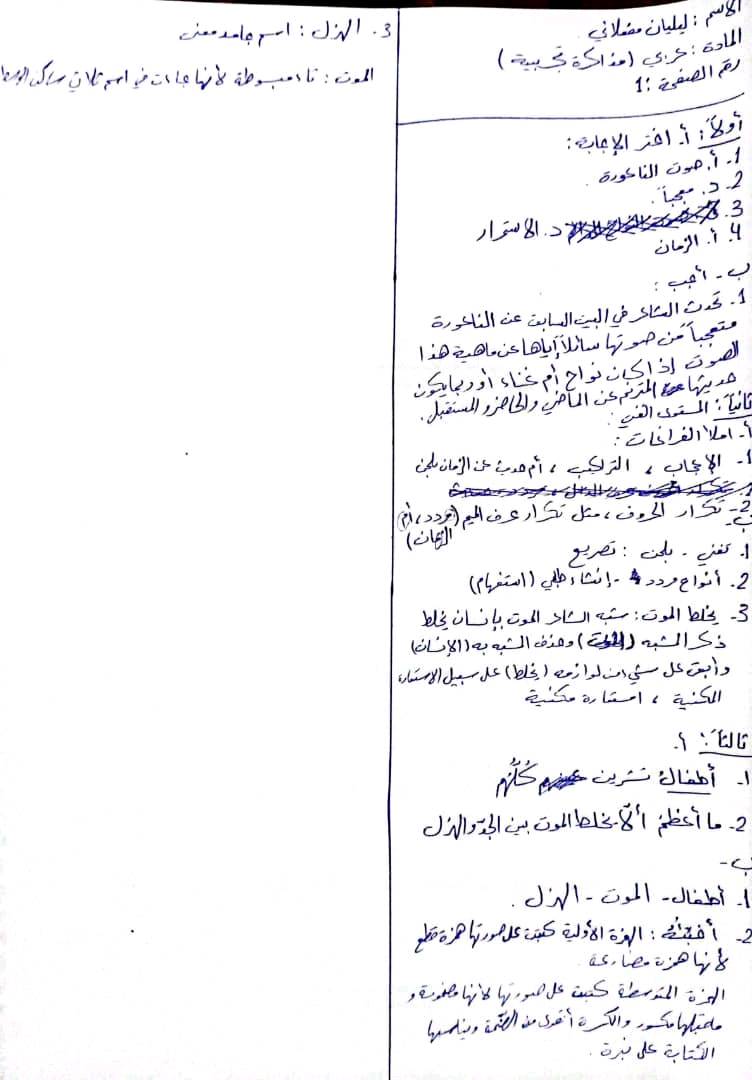 الاسم : ليليان مضلاني
المادة : عربي (مذاكرة تجريبية)
رقم الصفحة : 1
أولاً : أ. اختر الإجابة :
1. أ. صوت الناعورة
2. د. معجباً.
3. د. الاستمرار
4. أ. الزمان
ب - أجب :
1. تحدث الشاعر في البيت السابق عن الناعورة
متعجباً من صوتها سائلاً إياها عن ماهية هذا
الصوت إذا كان نواح أم غناء أو ربما يكون
حديثها المترنم عن الماضي والحاضر والمستقبل.
ثانياً : المستوى الفني :
أ- املأ الفراغات :
1- الإعجاب ، التراكيب ، أم حديث عن الزمان بلحن
2- تكرار الحروف ، مثل تكرار حرف الميم (مردد، أم
الزمان)
ب-
1. تغني - بلحن : تصريع
2. أنواح مردد - إنشاء طلبي (استفهام)
3- يخلط الموت : شبه الشاعر الموت بإنسان يخلط
ذكر المشبه (الموت) وحذف المشبه به (الإنسان)
وأبقى على شيء من لوازمه (يخلط) على سبيل الاستعارة
المكنية ، استعارة مكنية
ثالثاً : أ.
1. أطفال تشرين كُلُّهم
2- ما أعظم ألّا يخلط الموت بين الجدّ والهزل
ب-
1. أطفال - الموت - الهزل .
2- : الهمزة الأولية كتبت على صورتها همزة قطع
لأنها همزة مضارعة
الهمزة المتوسطة كتبت على صورتها لأنها مضمومة و
ماقبلها مكسور والكسرة أقوى من الضمّة ويناسبها
الكتابة على نبرة .
3. الهزل : اسم جامد معنى
الموت : تاء مبسوطة لأنها جاءت في اسم ثلاثي ساكن الوسط